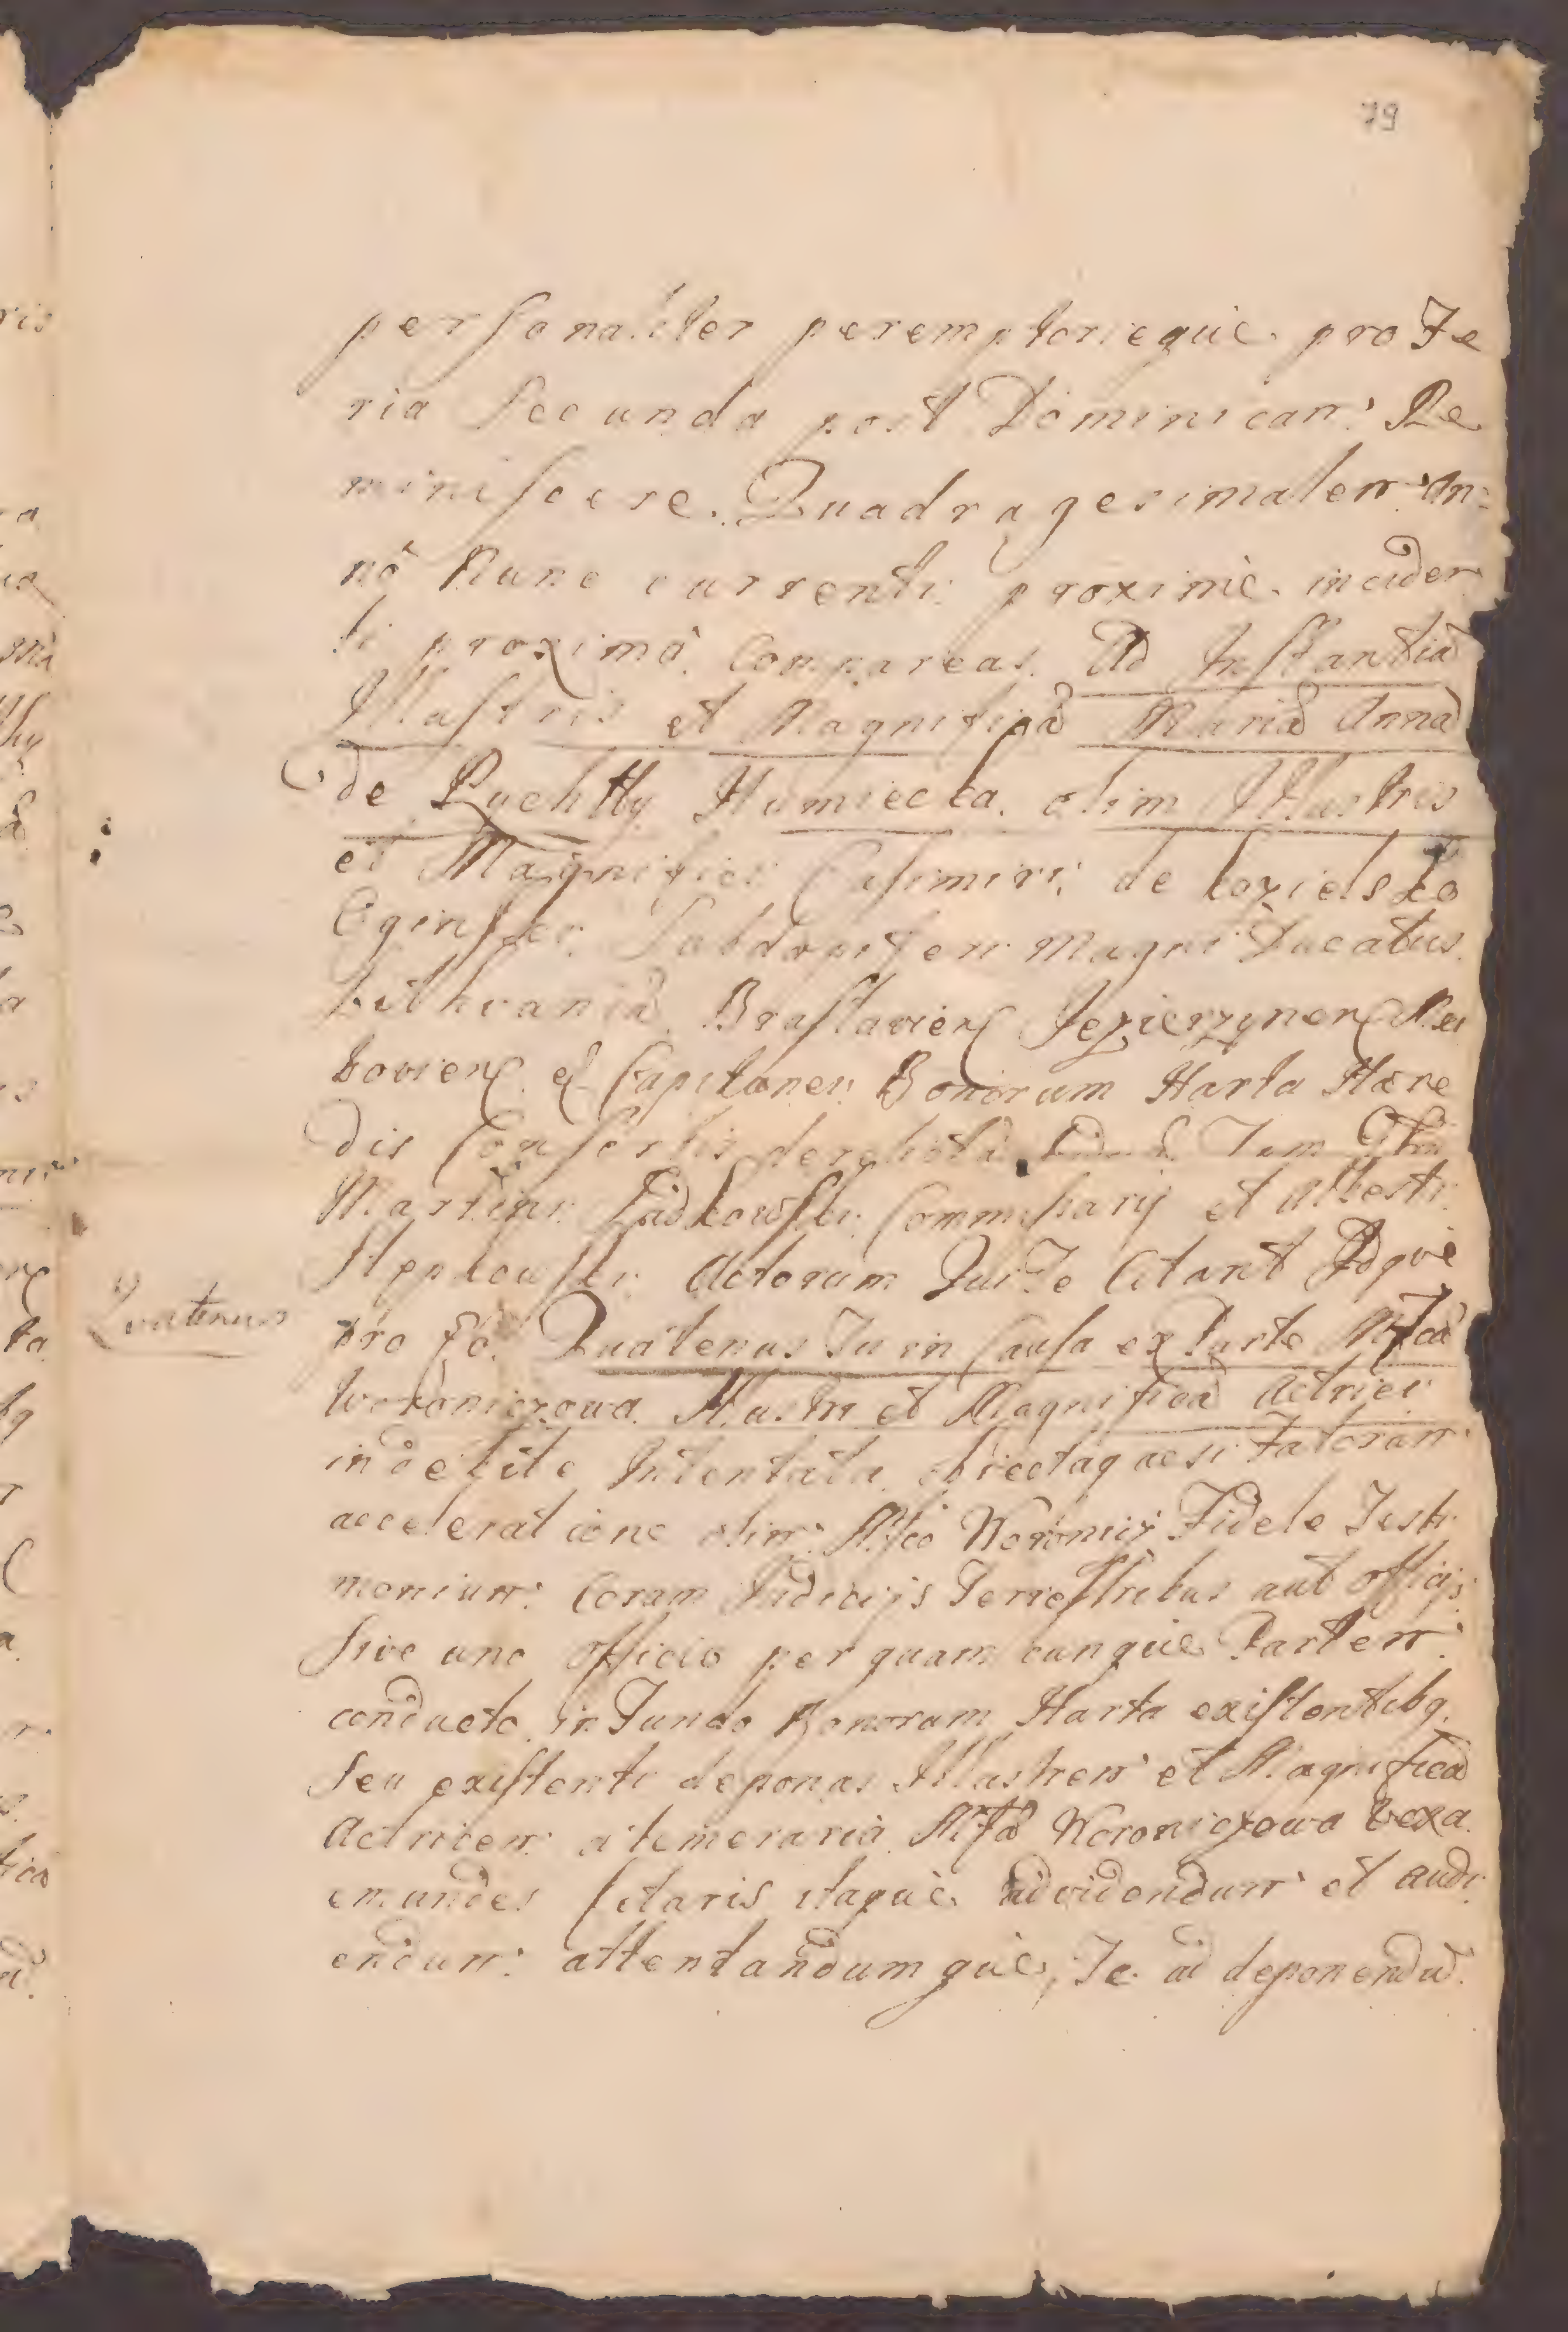 79
personaliter peremptorieque pro Fe
ria Secunda post Dominicam Re
miniscere Quadragesimalem An=
nô Nunc currenti proximè inciden
ti proximô Compareas Ad Instantiã
Illustris et Magnificã Mariã Annã
de Ruchtty Humiecka olim Illustris
et Magnifici Casimiri de Kozielsko
Oginskei Subdapiferi Magni Ducatus
Lithvaniã Braslavien Jezierzynen
bovien & Capitanei Bonorum Harta Hære
dis Consortis derelictã Tum
Martini Commissarij et Alberti
Actorum Qui Te Citant Idqve
Quatenus
pro eo Quatenus Tu in Causa ex Parte Mfcã
Woroniczowa Illustri et Magnificã Actrici
indebite Intentata Fatorum
acceleratione olim Mfco Woronicz Fidele Testi
monium Coram Judicijs Terrestribus aut officijs
sive uno officio per quam cunque Partem
conducto in Fundo Bonorum Harta existentibq
seu existenti deponas Illustrem et Magnificã
Actricem a temeraria Mfcã Woroniczowa vexa
emundes Citaris itaque ad videndum et audi
endum attentandumque Te ad deponendũ